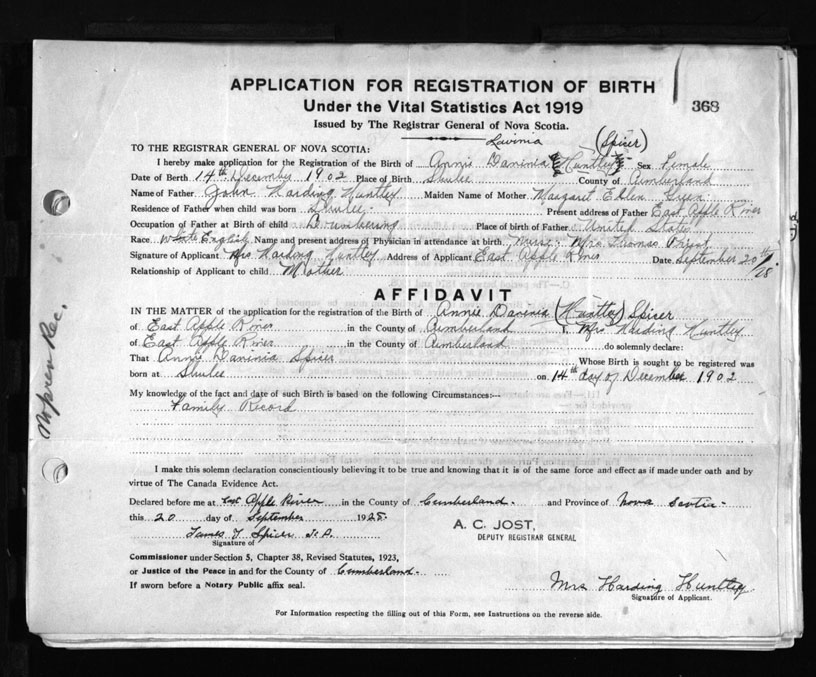 APPLICATION FOR REGISTRATION OF BIRTH
368
Under the Vital Statistics Act 1919
Issued by The Registrar General of Nova Scotia.
Lavinia (Spicer)
TO THE REGISTRAR GENERAL OF NOVA SCOTIA:
I hereby make application for the Registration of the Birth of Annie Davinia Huntley Sex Female
Date of Birth 14th December 1902 Place of Birth Shulee County of Cumberland
Name of Father John Harding Huntley Maiden Name of Mother Margaret Ellen Green
Residence of Father when child was born Shulee Present address of Father East Apple River
Occupation of Father at Birth of child Lumbering Place of birth of Father United States
Race White English Name and present address of Physician in attendance at birth Nurse Mrs Thomas
Signature of Applicant Mrs Harding Huntley Address of Applicant East Apple River Date September 20th/28
Relationship of Applicant to child Mother
AFFIDAVIT
IN THE MATTER of the application for the registration of the Birth of Annie Davinia (Huntley) Spicer
of East Apple River in the County of Cumberland I, Mrs Harding Huntley
of East Apple River in the County of Cumberland do solemnly declare:
That Annie Davinia Spicer Whose Birth is sought to be registered was
born at Shulee on 14th day of December 1902
My knowledge of the fact and date of such Birth is based on the following Circumstances:—
Family Record
No pren Rec.
I make this solemn declaration conscientiously believing it to be true and knowing that it is of the same force and effect as if made under oath and by
virtue of The Canada Evidence Act.
Declared before me at East Apple River in the County of Cumberland. and Province of Nova Scotia.
this 20 day of September 1928.
A. C. JOST,
DEPUTY REGISTRAR GENERAL
James T Spicer J.P.
Signature of
Commissioner under Section 5, Chapter 38, Revised Statutes, 1923,
or Justice of the Peace in and for the County of Cumberland.
If sworn before a Notary Public affix seal.
Mrs Harding Huntley
Signature of Applicant.
For Information respecting the filling out of this Form, see Instructions on the reverse side.